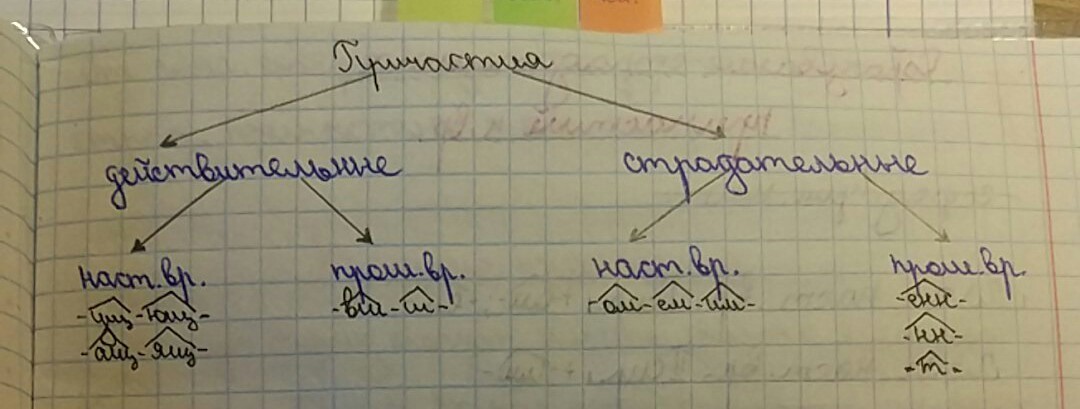 Причастия
действительные страдательные
наст.вр. прош.вр. наст.вр. прош.вр.
-ущ-ющ- -вш-ш- -ом-ем-им- -енн-
-ащ-ящ- -нн-
-т-